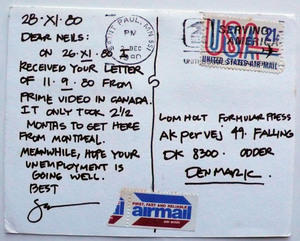 28·XI·80
DEAR NEILS:
ON 26·XI·80 I
RECEIVED YOUR LETTER
OF 11·9·80 FROM
PRIME VIDEO IN CANADA.
IT ONLY TOOK 2½
MONTHS TO GET HERE
FROM MONTREAL.
MEANWHILE, HOPE YOUR
UNEMPLOYMENT IS
GOING WELL.
BEST
SAINT PAUL, MN 551
PM
2 DEC
1980
SERVING
AMERICA
USA 21c
UNITED STATES AIR MAIL
LOMHOLT FORMULAR PRESS
AKPERVEJ 49. FALLING
DK 8300. ODDER
DENMARK.
FIRST, FAST AND RELIABLE
airmail